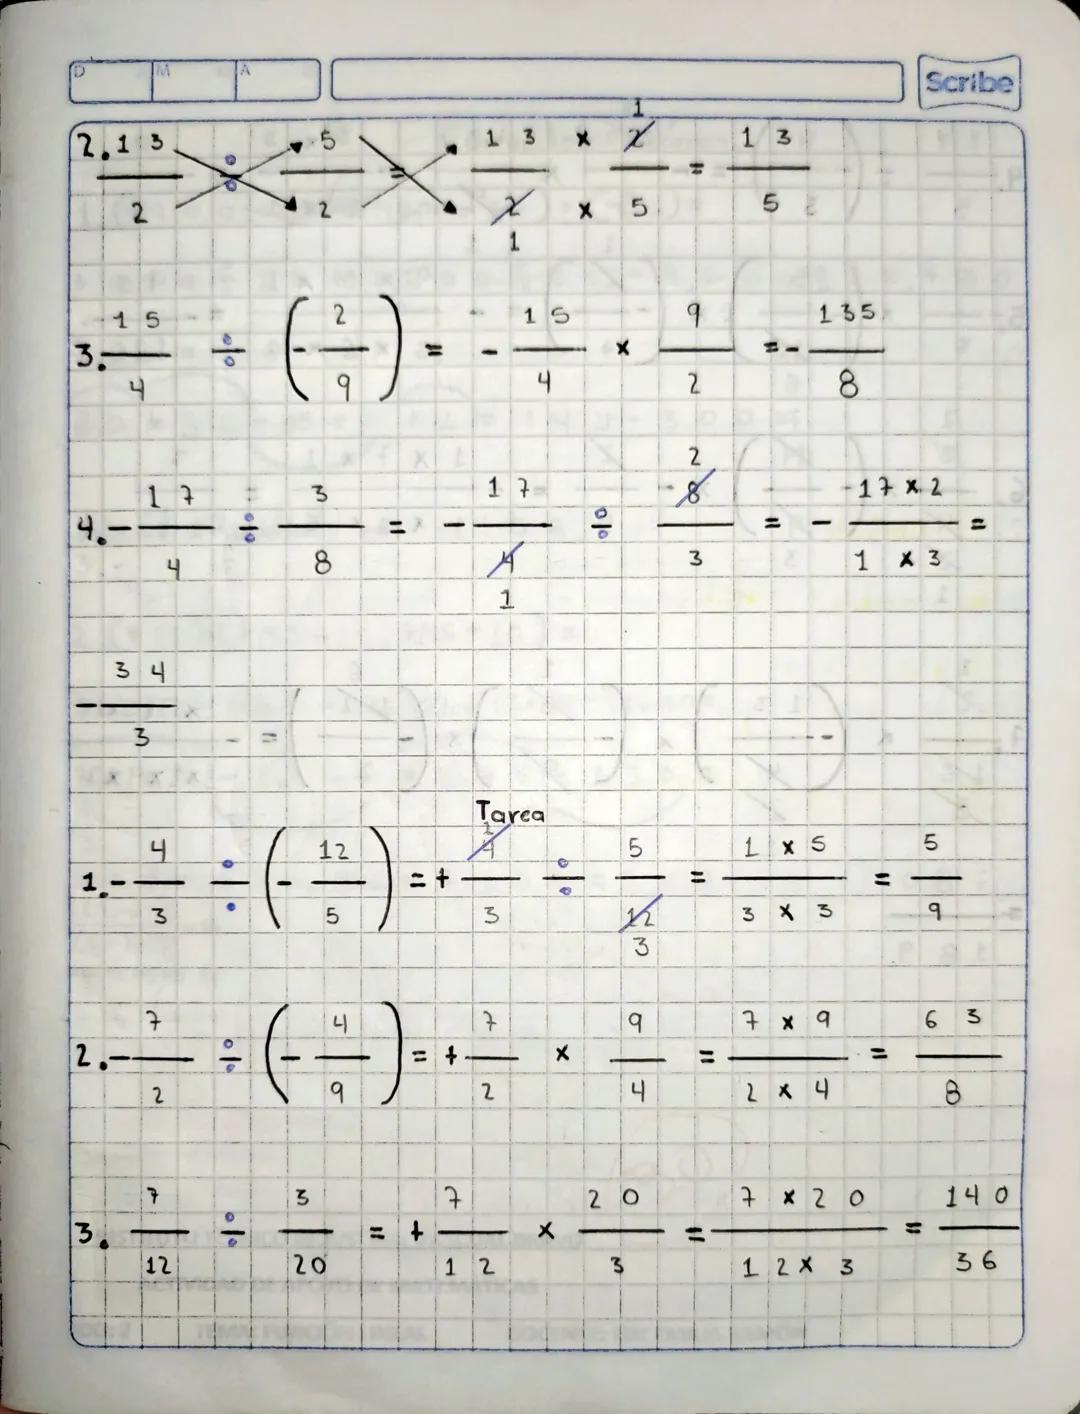 D M A Scribe
2. 13/2 ÷ 5/2 = 13/2 1 × 2/5 1 = 13/5
3. 15/4 ÷ (-2/9) = -15/4 × 9/2 = -135/8
4. -17/4 ÷ 3/8 = -17/4 1 ÷ 8/3 2 = - -17×2/1×3 =
-34/3
Tarea
1. -4/3 ÷ (-12/5) = +4/3 1 ÷ 5/12 3 = 1×5/3×3 = 5/9
2. -7/2 ÷ (-4/9) = +7/2 × 9/4 = 7×9/2×4 = 63/8
3. 7/12 ÷ 3/20 = +7/12 × 20/3 = 7×20/12×3 = 140/36